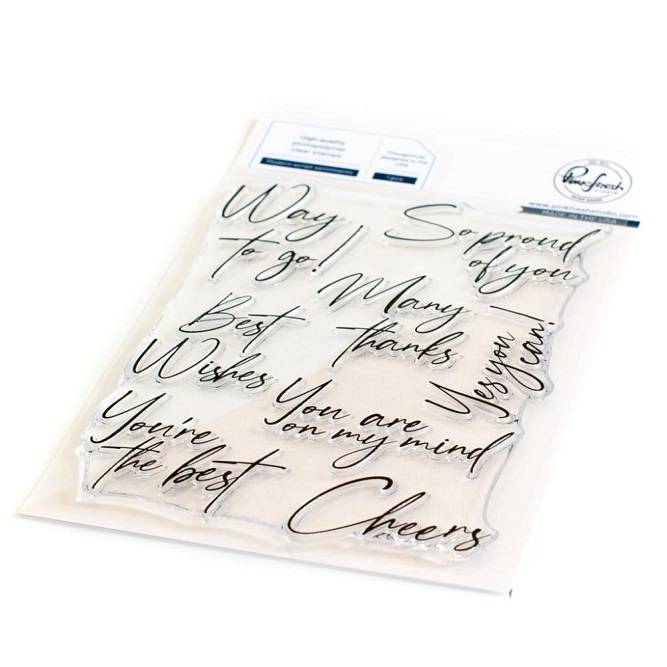 High quality
photopolymer
clear stamps
Modern script sentiments
Thoughtfully
designed in the
USA
Pinkfresh
STUDIO
www.pinkfreshstudio.com
MADE IN THE USA
Way
to go!
So proud
of you
Many
thanks
Best
Wishes
Yes you
can!
You are
on my mind
You're
the best
Cheers